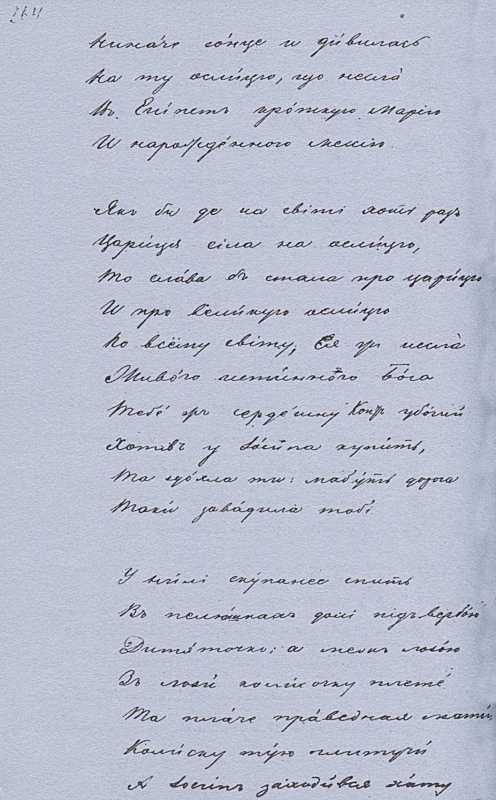 Нина́че со́нце и ди́вилась
На ту осли́цю, що несла́
Въ Еги́петъ кро́ткую Марі́ю
И нарожде́нного месію.
Якъ би де на світі хотъ разъ
Цари́ця сіла на осли́цю,
То сла́ва бъ стала про цари́цю
И про вели́кую осли́цю
По всёму світу; Ся жъ несла́
Живо́го истинного Бо́га
Тебе́ жъ серде́шну Контъ убо́гий
Хотівъ у Іо́сипа купить,
Та здо́хла ти: мабу́ть дорога
Таки завади́ла тобі
У ни́лі ску́панее спить
Въ пелю́шкахъ долі підъ вербо́ю
Дитя́точко; а межъ лозо́ю
Зъ лози́ коли́сочку плете́
Та пла́че пра́ведная мати,
Коли́ску ту́ю плетучи́
А Іосипъ заходи́вся ха́ту